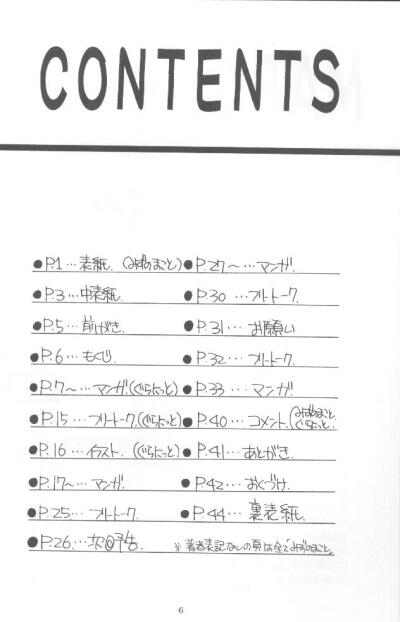 CONTENTS
●P.1…表紙.(みずのまこと)
●P.3…中表紙.
●P.5…前がき.
●P.6…もくじ.
●P.7~…マンガ.(ぐらにっと)
●P.15…フリートーク.(ぐらにっと)
●P.16…イラスト.(ぐらにっと)
●P.17~…マンガ.
●P.25…フリートーク.
●P.26…次回予告.
●P.27~…マンガ.
●P.30…フリートーク.
●P.31…お願い
●P.32…フリートーク.
●P.33…マンガ.
●P.40…コメント.(みずのまこと.ぐらにっと.
●P.41…あとがき.
●P.42…おくづけ.
●P.44…裏表紙.
※著者表記なしの頁は全てみずのまこと。
6